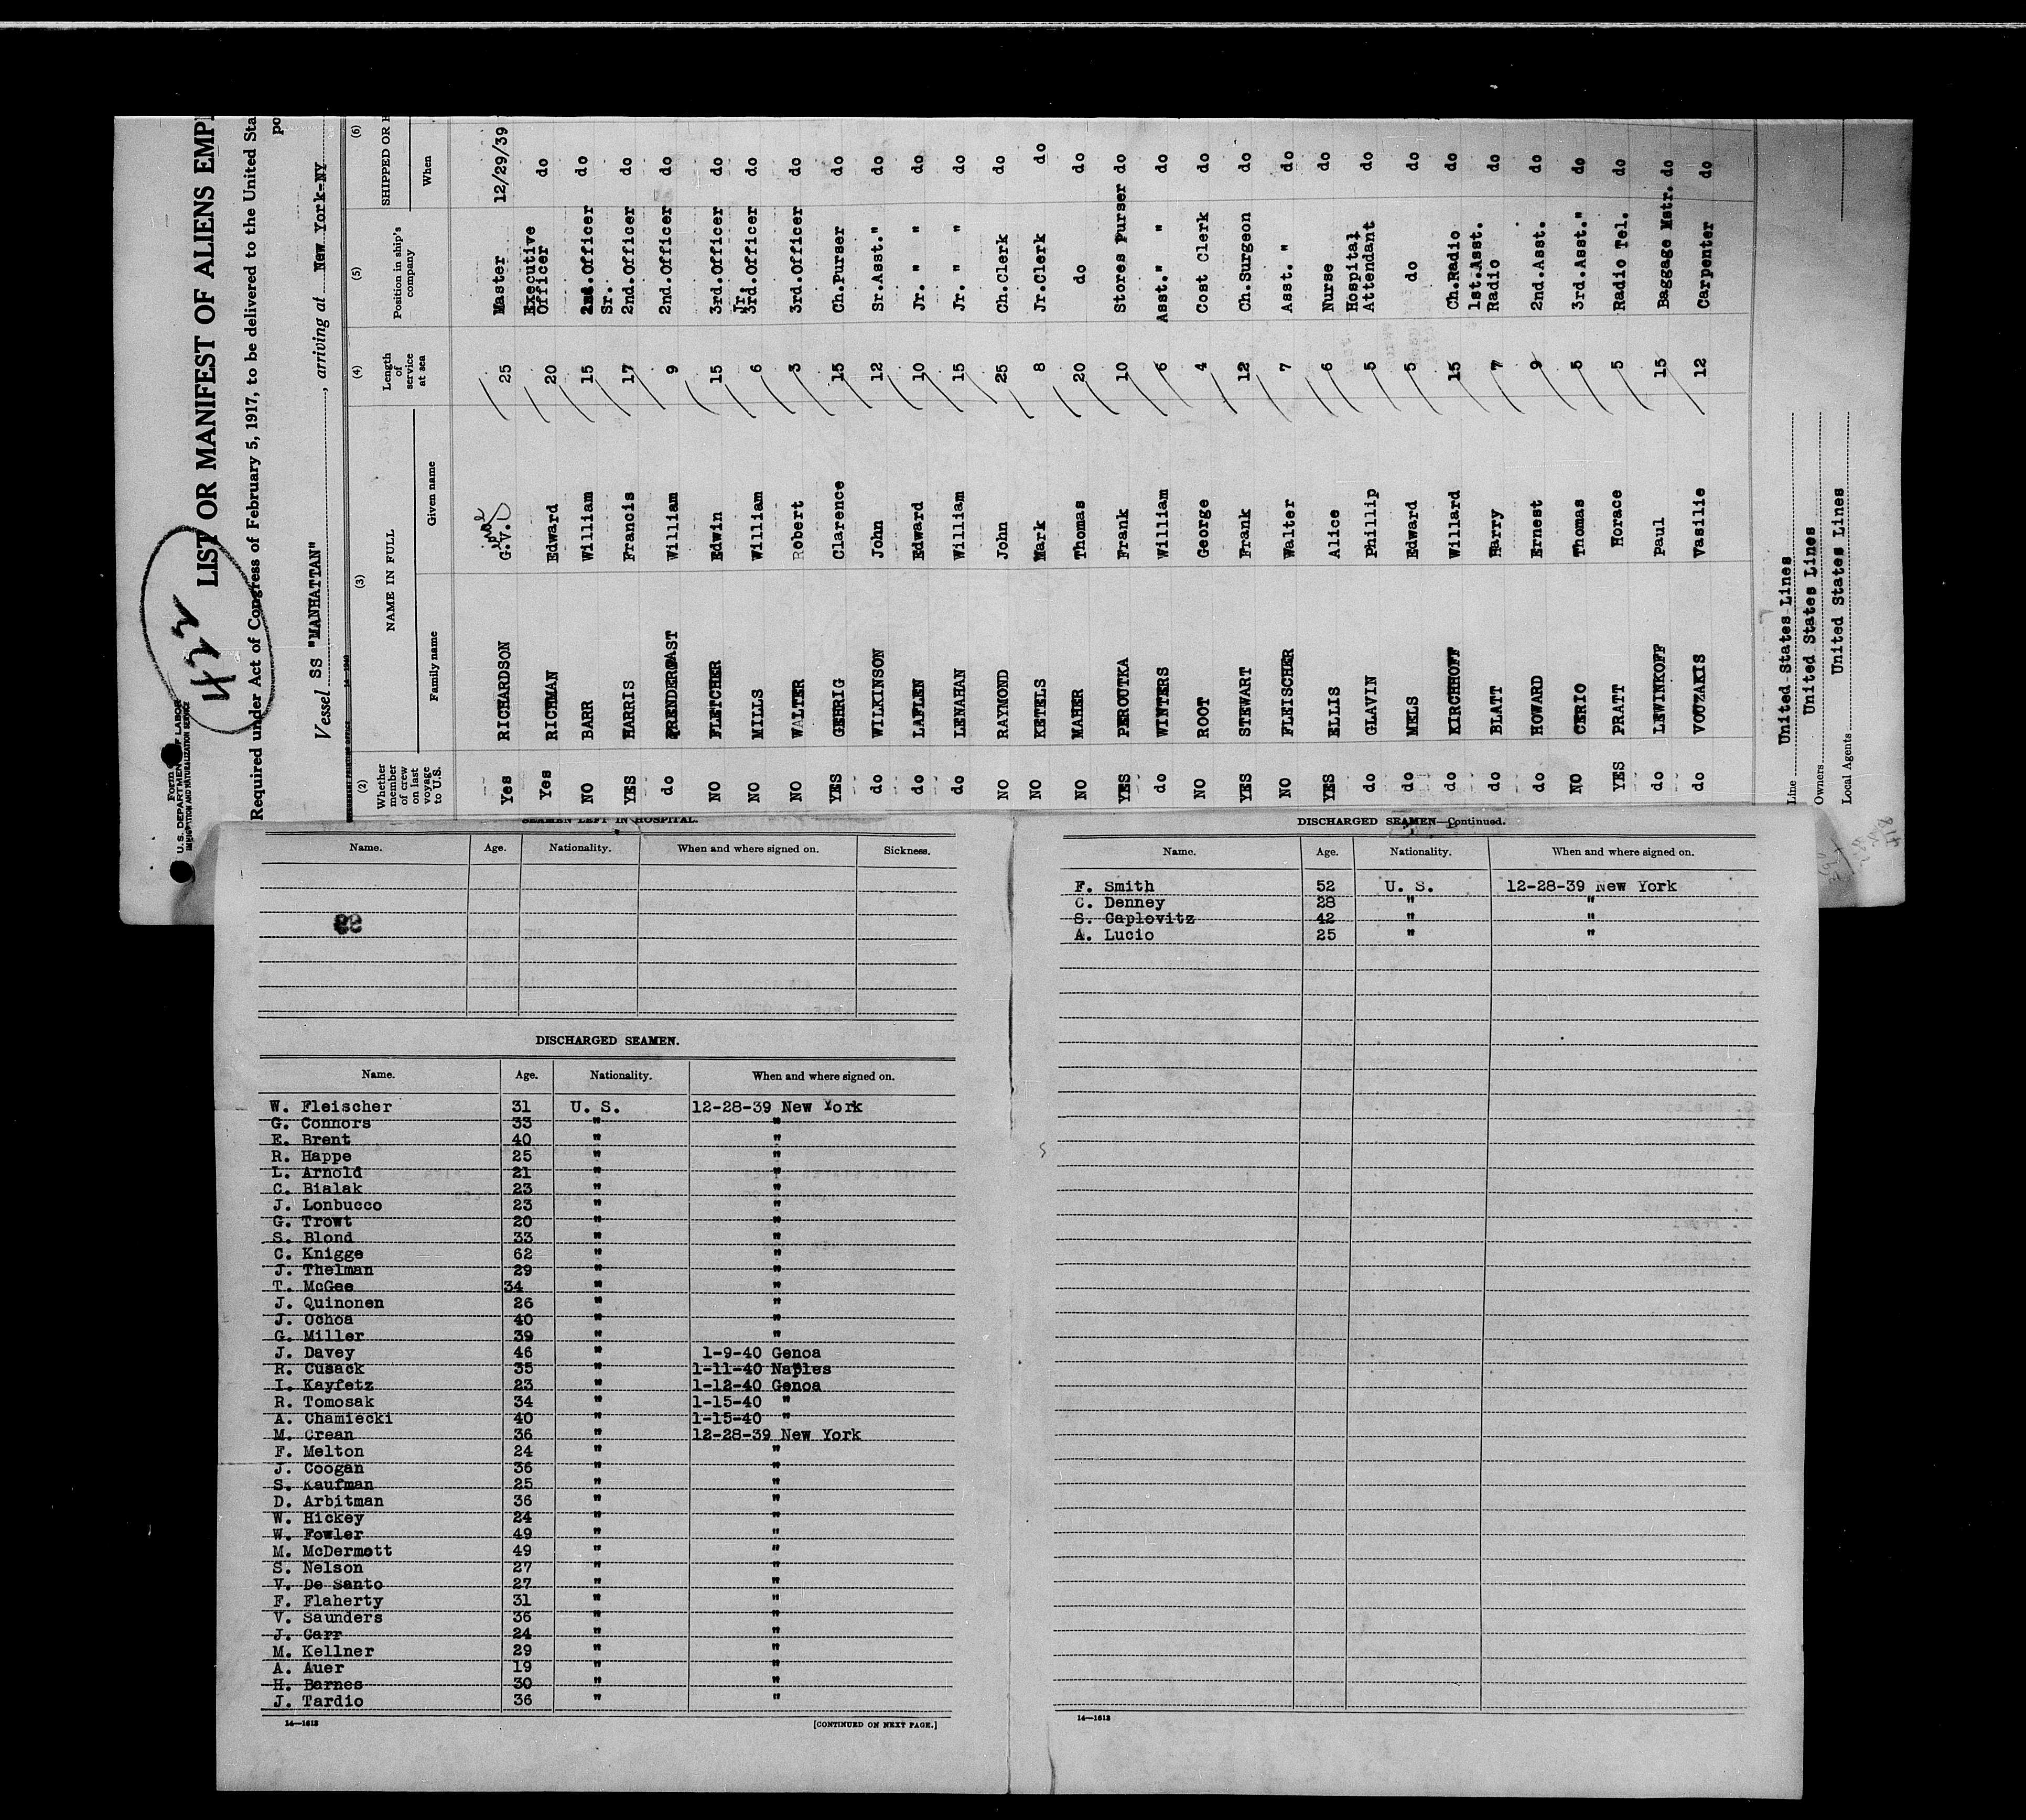 422
Form
U. S. DEPARTMENT OF LABOR
IMMIGRATION AND NATURALIZATION SERVICE
LIST OR MANIFEST OF ALIENS EMPL
Required under Act of Congress of February 5, 1917, to be delivered to the United Sta
po
Vessel SS "MANHATTAN" , arriving at New York-NY
(2) (3) (4) (5) (6)
Whether member of crew on last voyage to U.S. NAME IN FULL Length of service at sea Position in ship's company SHIPPED OR E
Family name Given name When
Yes RICHARDSON G.V. 25 Master 12/29/39
Yes RICHMAN Edward 20 Executive Officer do
NO BARR William 15 2nd.Officer do
YES HARRIS Francis 17 Sr. 2nd.Officer do
do PRENDERGAST William 9 2nd.Officer do
NO FLETCHER Edwin 15 3rd.Officer do
NO MILLS William 6 Jr 3rd.Officer do
NO WALTER Robert 3 3rd.Officer do
YES GEHRIG Clarence 15 Ch.Purser do
do WILKINSON John 12 Sr.Asst." do
do LAFLEN Edward 10 Jr. " " do
do LENAHAN William 15 Jr. " " do
NO RAYMOND John 25 Ch.Clerk do
NO KETELS Mark 8 Jr.Clerk do
NO MAHER Thomas 20 do do
YES PEROUTKA Frank 10 Stores Purser do
do WINTERS William 6 Asst." " do
NO ROOT George 4 Cost Clerk do
YES STEWART Frank 12 Ch.Surgeon do
NO FLEISCHER Walter 7 Asst. " do
YES ELLIS Alice 6 Nurse do
do GLAVIN Phillip 5 Hospital Attendant do
do MELS Edward 5 do do
do KIRCHHOFF Willard 15 Ch.Radio do
do BLATT Harry 7 1st.Asst. Radio do
do HOWARD Ernest 9 2nd.Asst. do
NO CERIO Thomas 5 3rd.Asst." do
YES PRATT Horace 5 Radio Tel. do
do LEWINKOFF Paul 15 Baggage Mstr. do
do VOUZAKIS Vasilie 12 Carpenter do
Line United States Lines
Owners United States Lines
Local Agents United States Lines
SEAMEN LEFT IN HOSPITAL.
Name. Age. Nationality. When and where signed on. Sickness.
DISCHARGED SEAMEN.
Name. Age. Nationality. When and where signed on.
W. Fleischer 31 U. S. 12-28-39 New York
G. Connors 33 " "
E. Brent 40 " "
R. Happe 25 " "
L. Arnold 21 " "
C. Bialak 23 " "
J. Lonbucco 23 " "
G. Trowt 20 " "
S. Blond 33 " "
C. Knigge 62 " "
J. Thelman 29 " "
T. McGee 34 " "
J. Quinonen 26 " "
J. Ochoa 40 " "
G. Miller 39 " "
J. Davey 46 " 1-9-40 Genoa
R. Cusack 35 " 1-11-40 Naples
I. Kayfetz 23 " 1-12-40 Genoa
R. Tomosak 34 " 1-15-40 "
A. Chamiecki 40 " 1-15-40 "
M. Crean 36 " 12-28-39 New York
F. Melton 24 " "
J. Coogan 36 " "
S. Kaufman 25 " "
D. Arbitman 36 " "
W. Hickey 24 " "
W. Fowler 49 " "
M. McDermott 49 " "
S. Nelson 27 " "
V. De Santo 27 " "
F. Flaherty 31 " "
V. Saunders 36 " "
J. Carr 24 " "
M. Kellner 29 " "
A. Auer 19 " "
H. Barnes 30 " "
J. Tardio 36 " "
14—1613
[CONTINUED ON NEXT PAGE.]
DISCHARGED SEAMEN—Continued.
Name. Age. Nationality. When and where signed on.
F. Smith 52 U. S. 12-28-39 New York
C. Denney 28 " "
S. Caplovitz 42 " "
A. Lucio 25 " "
14—1613